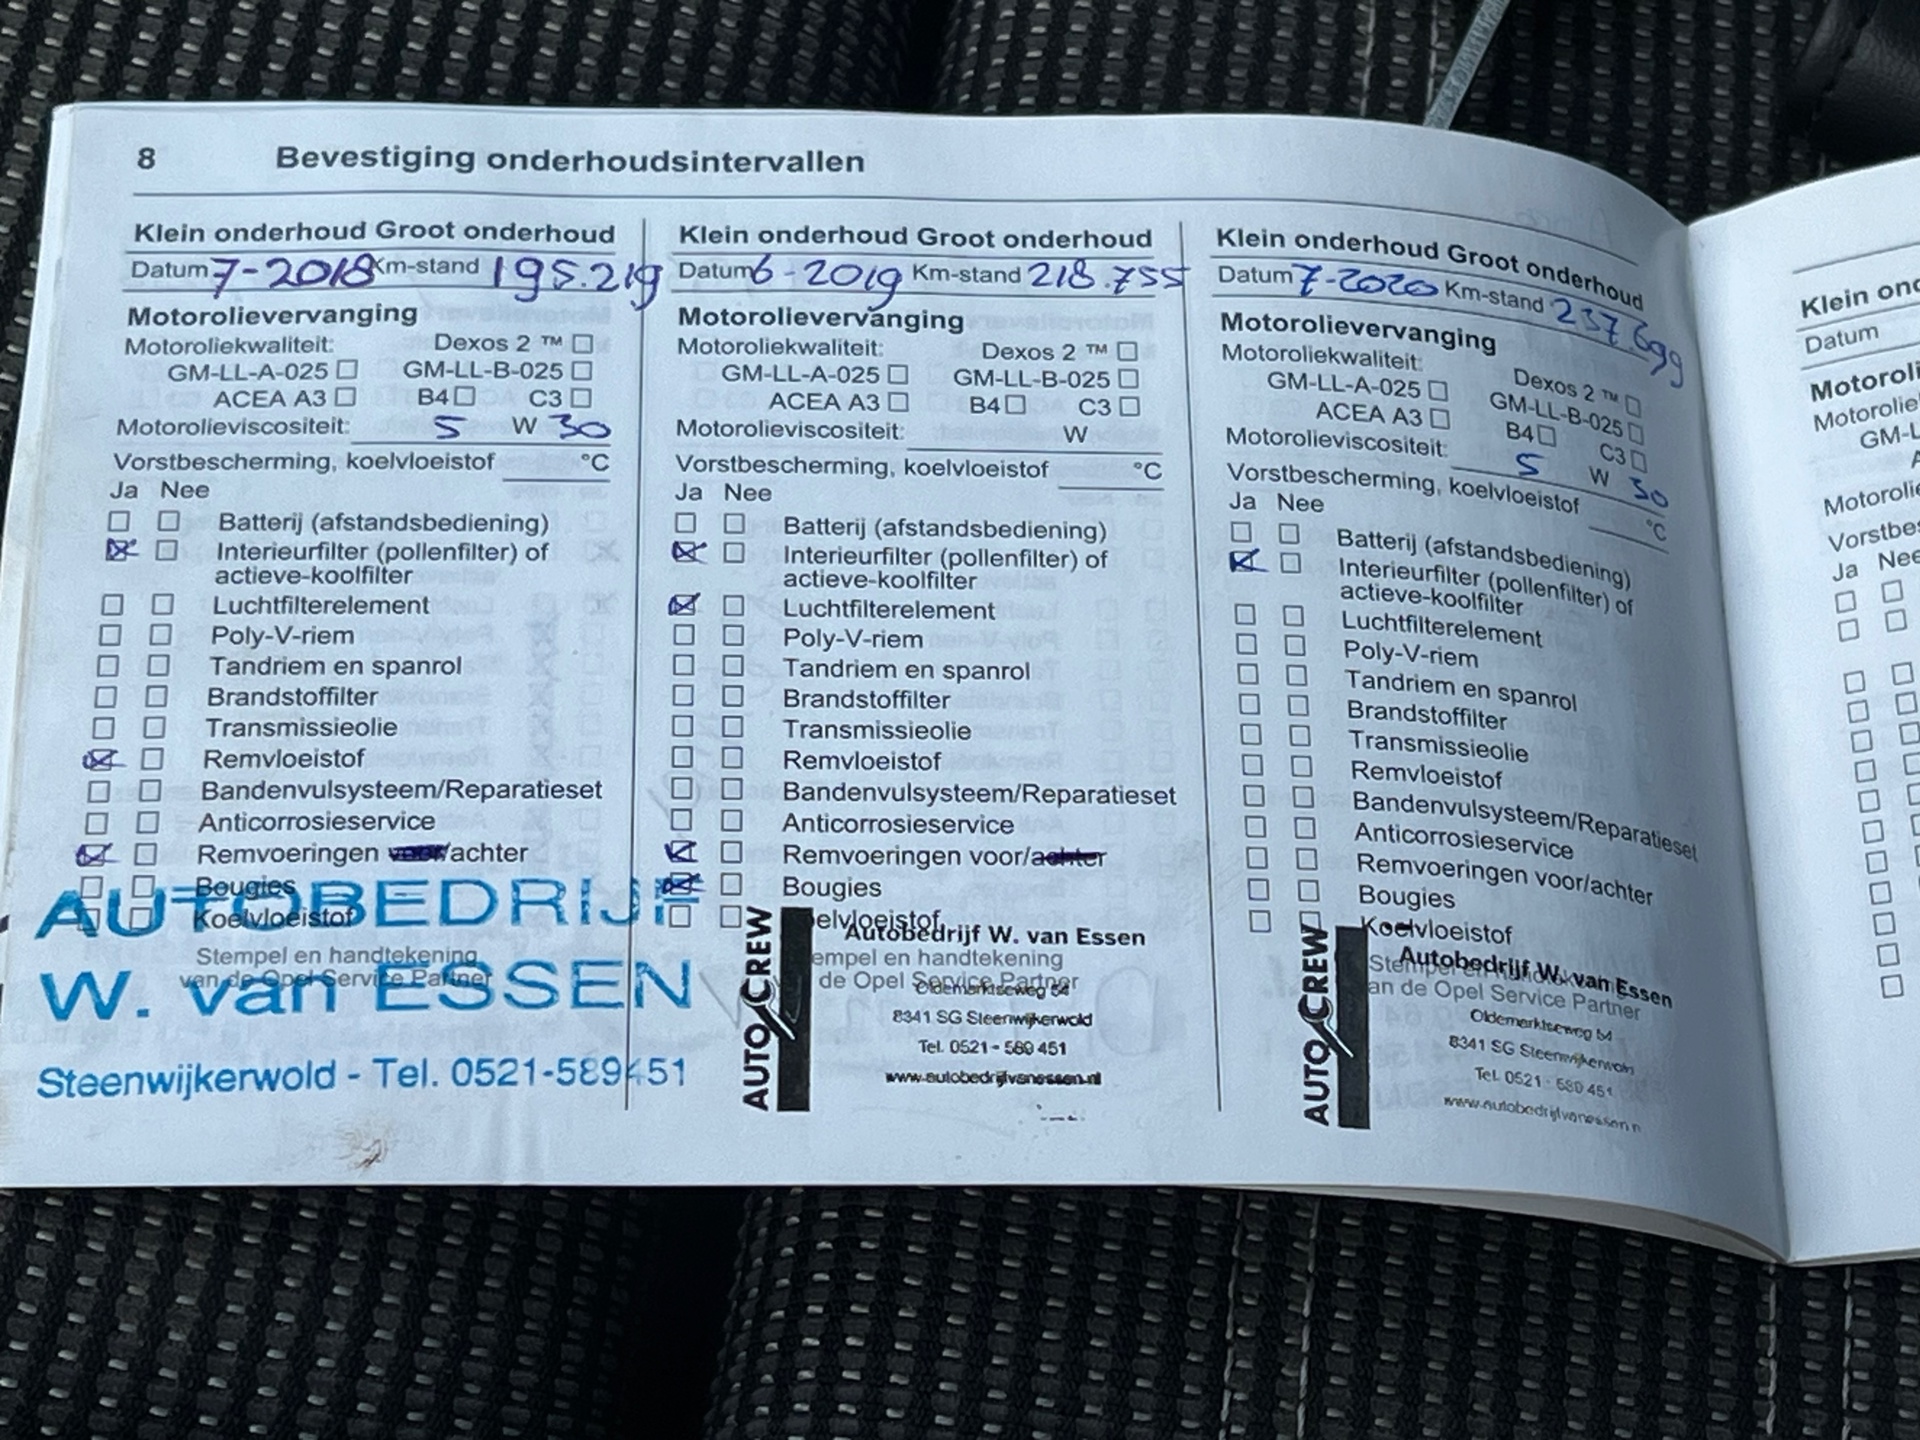 8 Bevestiging onderhoudsintervallen
Klein onderhoud Groot onderhoud
Datum 7-2018 Km-stand 195.219
Motorolievervanging
Motoroliekwaliteit: Dexos 2 ™
GM-LL-A-025 GM-LL-B-025
ACEA A3 B4 C3
Motorolieviscositeit: 5 W 30
Vorstbescherming, koelvloeistof °C
Ja Nee
Batterij (afstandsbediening)
Interieurfilter (pollenfilter) of
actieve-koolfilter
Luchtfilterelement
Poly-V-riem
Tandriem en spanrol
Brandstoffilter
Transmissieolie
Remvloeistof
Bandenvulsysteem/Reparatieset
Anticorrosieservice
Remvoeringen voor/achter
Bougies
Koelvloeistof
Stempel en handtekening
van de Opel Service Partner
AUTOBEDRIJF
W. van ESSEN
Steenwijkerwold - Tel. 0521-589451
Klein onderhoud Groot onderhoud
Datum 6-2019 Km-stand 218.755
Motorolievervanging
Motoroliekwaliteit: Dexos 2 ™
GM-LL-A-025 GM-LL-B-025
ACEA A3 B4 C3
Motorolieviscositeit: W
Vorstbescherming, koelvloeistof °C
Ja Nee
Batterij (afstandsbediening)
Interieurfilter (pollenfilter) of
actieve-koolfilter
Luchtfilterelement
Poly-V-riem
Tandriem en spanrol
Brandstoffilter
Transmissieolie
Remvloeistof
Bandenvulsysteem/Reparatieset
Anticorrosieservice
Remvoeringen voor/achter
Bougies
oelvloeistof
empel en handtekening
de Opel Service Partner
AUTO CREW
Autobedrijf W. van Essen
Oldemarktseweg 54
8341 SG Steenwijkerwold
Tel. 0521 - 589 451
www.autobedrijfvanessen.nl
Klein onderhoud Groot onderhoud
Datum 7-2020 Km-stand 237.699
Motorolievervanging
Motoroliekwaliteit: Dexos 2 ™
GM-LL-A-025 GM-LL-B-025
ACEA A3 B4 C3
Motorolieviscositeit: 5 W 30
Vorstbescherming, koelvloeistof °C
Ja Nee
Batterij (afstandsbediening)
Interieurfilter (pollenfilter) of
actieve-koolfilter
Luchtfilterelement
Poly-V-riem
Tandriem en spanrol
Brandstoffilter
Transmissieolie
Remvloeistof
Bandenvulsysteem/Reparatieset
Anticorrosieservice
Remvoeringen voor/achter
Bougies
Koelvloeistof
Stempel en
an de Opel Service Partner
AUTO CREW
Autobedrijf W. van Essen
Oldemarktseweg 54
8341 SG Steenwijkerwold
Tel. 0521 - 589 451
www.autobedrijfvanessen.n
Klein ond
Datum
Motoroli
Motorolie
GM-L
A
Motorolie
Vorstbes
Ja Nee